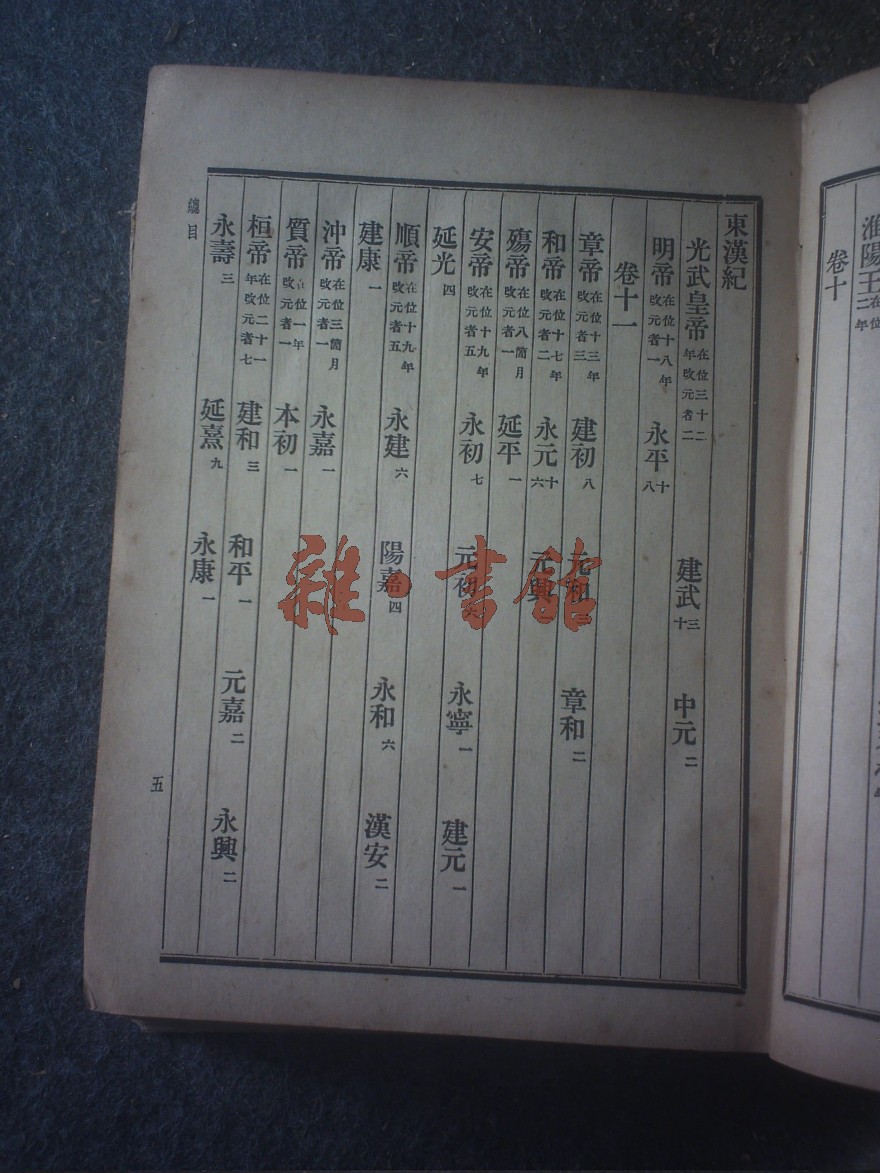 淮陽王在位二年
卷十
東漢紀
光武皇帝在位三十二年改元者二 建武三十 中元二
明帝在位十八年改元者一 永平十八
卷十一
章帝在位十三年改元者三 建初八 元和三 章和二
和帝在位十七年改元者二 永元十六 元興一
殤帝在位八箇月改元者一 延平一
安帝在位十九年改元者五 永初七 元初六 永寧一 建元一
延光四
順帝在位十九年改元者五 永建六 陽嘉四 永和六 漢安二
建康一
沖帝在位三箇月改元者一 永嘉一
質帝在位一年改元者一 本初一
桓帝在位二十一年改元者七 建和三 和平一 元嘉二 永興二
永壽三 延熹九 永康一
總目
五
雜·書館